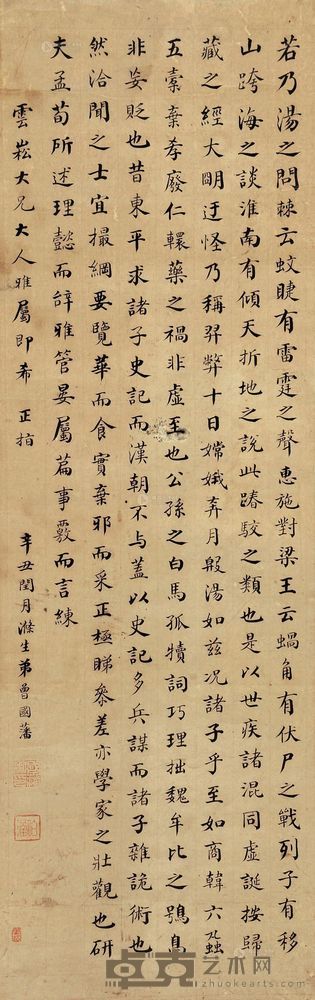 若乃湯之問棘云蚊睫有雷霆之聲惠施對梁王云蝸角有伏尸之戰列子有移
山跨海之談淮南有傾天折地之說此踳駮之類也是以世疾諸混同虛誕按歸
藏之經大眀迂怪乃稱羿弊十日嫦娥奔月殷湯如茲况諸子乎至如商韓六蝨
五蠹棄孝廢仁轘藥之禍非虛至也公孫之白馬孤犢詞巧理拙魏牟比之鴞鳥
非妄貶也昔東平求諸子史記而漢朝不与蓋以史記多兵謀而諸子雜詭術也
然洽聞之士宜撮綱要覽華而食實棄邪而采正極睇參差亦學家之壯觀也研
夫孟荀所述理懿而辭雅管晏屬篇事覈而言練
雲崧大兄大人雅屬即希 正指
辛丑閏月滌生弟曾國藩
卓克艺术网
www.zhuokearts.com